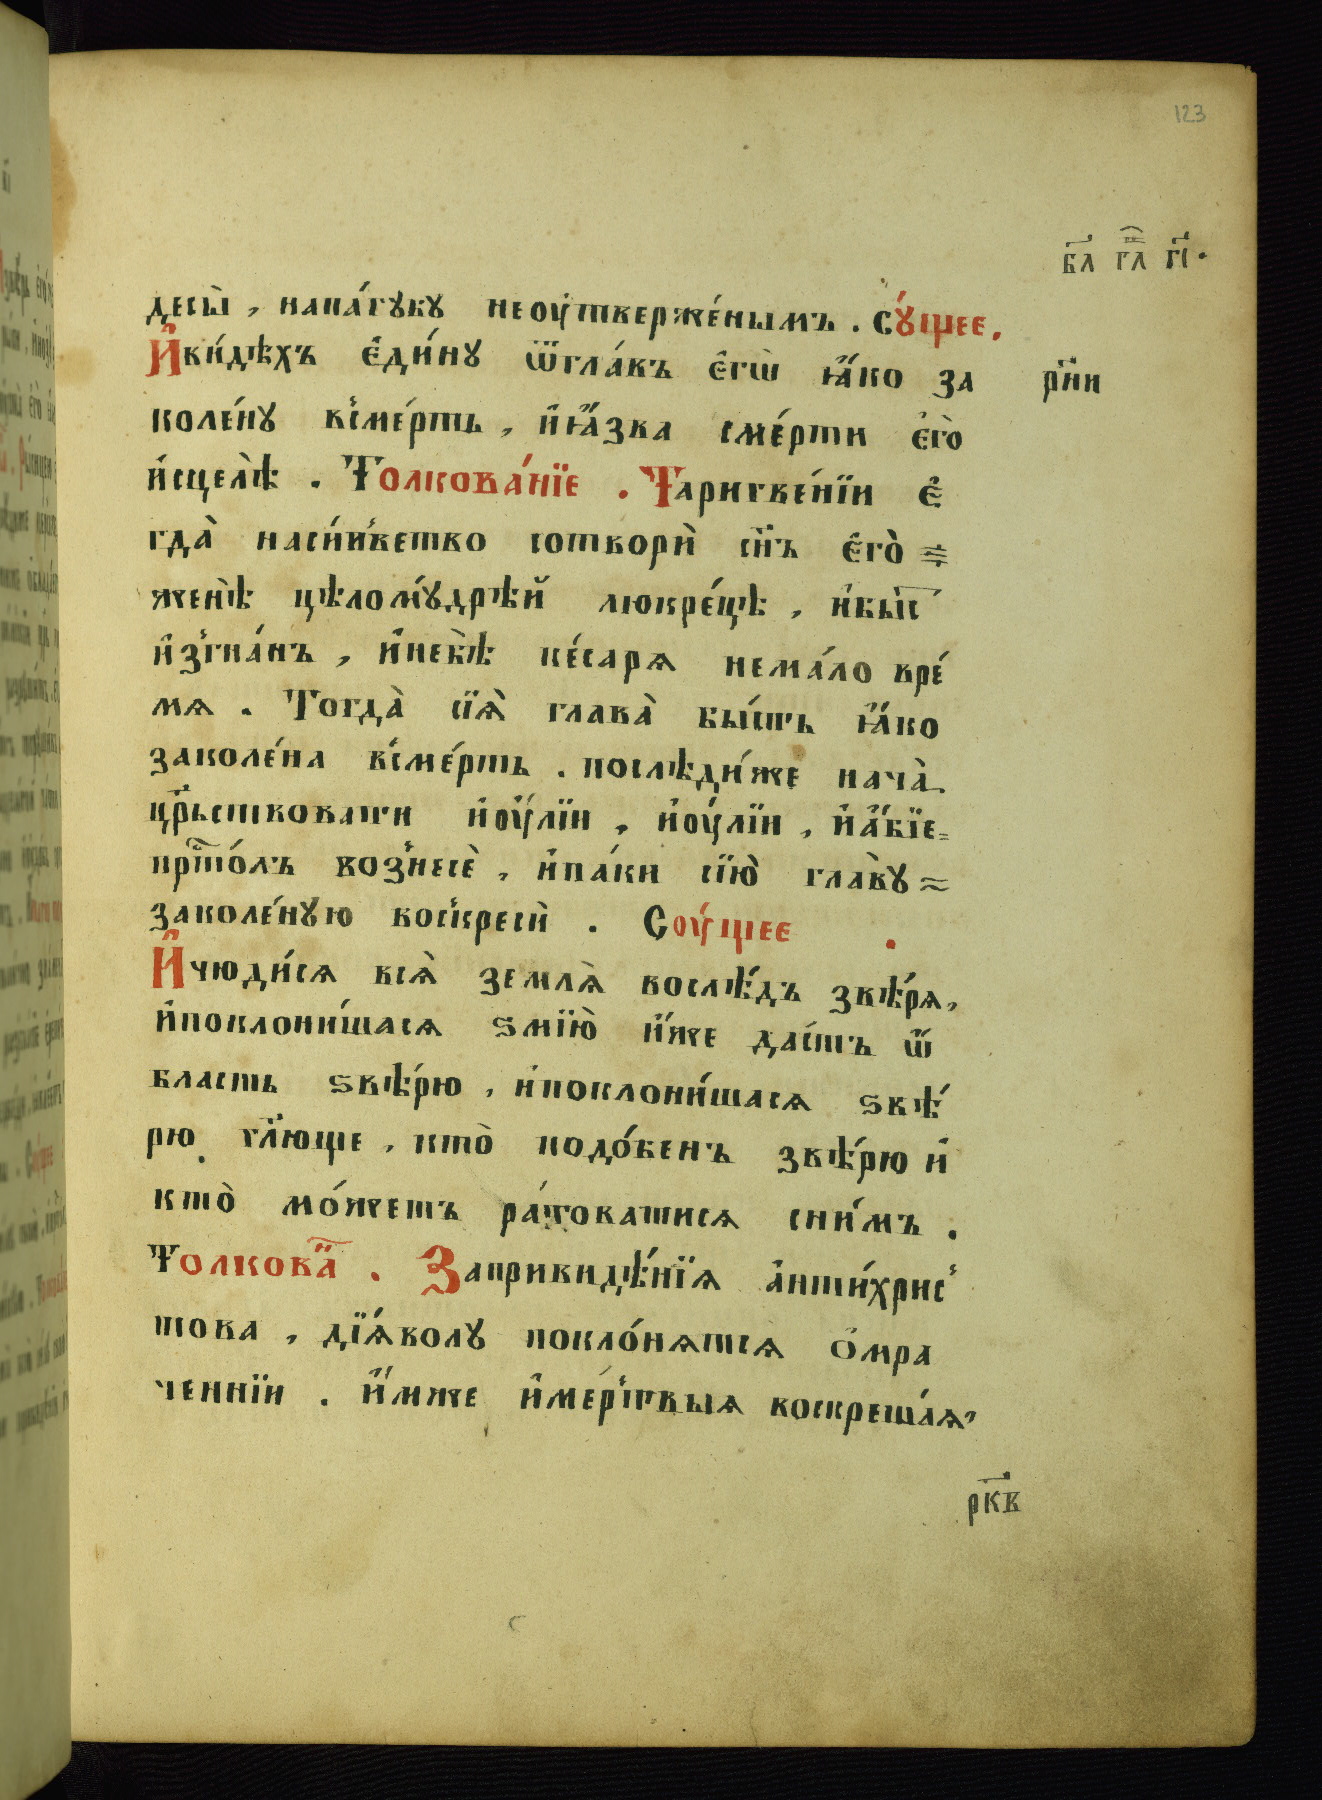 123
в҃л гл҃ г҃і.
десы̀ , напа́гꙋбꙋ неоу҆тверже́нымъ . Сꙋ́щее .
И҆ви́дѣхъ є҆ди́нꙋ ѿгла́въ є҆гѡ̀ ꙗ҆́ко за
р҃ни
коле́нꙋ всме́рть , и҆ꙗ҆́зва сме́рти є҆го̀
и҆сцелѣ̀ . Толкова́нїе . Таригве́нїи є҆
гда̀ наси́лветво сотворѝ сн҃ъ є҆го̀
женѣ̀ цѣломꙋ́дрѣй люкре́цѣ , и҆бы́с
и҆згна́нъ , и҆небѣ̀ ке́саря нема́ло вре́
мя . Тогда̀ сїѧ̀ глава̀ бы́сть ꙗ҆́ко
заколе́на всме́рть . послѣди́же нача̀
цр҃ьствовати и҆оу҆́лїи , и҆оу҆́лїи , и҆а҆́бїе
прⷭ҇то́лъ вознесѐ , и҆па́ки сїю̀ главꙋ̀
заколе́нꙋю воскресѝ . Соу́щее .
И҆чюди́ся всѧ̀ землѧ̀ вослѣ́дъ звѣ́ря ,
и҆поклони́шася ѕмїю̀ и҆́же да́стъ ѿ
власть ѕвѣ́рю , и҆поклони́шася ѕвѣ́
рю гл҃юще , кто̀ подо́бенъ звѣ́рю и҆
кто̀ мо́жетъ ра́товатися сни́мъ .
Толкова́ . Заприви́дѣ́нїя а҆нти́хрис
това , дїѧ́волꙋ покло́нятся ѻ҆мра
ченнїи . и҆́мже и҆ме́ртвыя воскреша́я ,
рк҃в